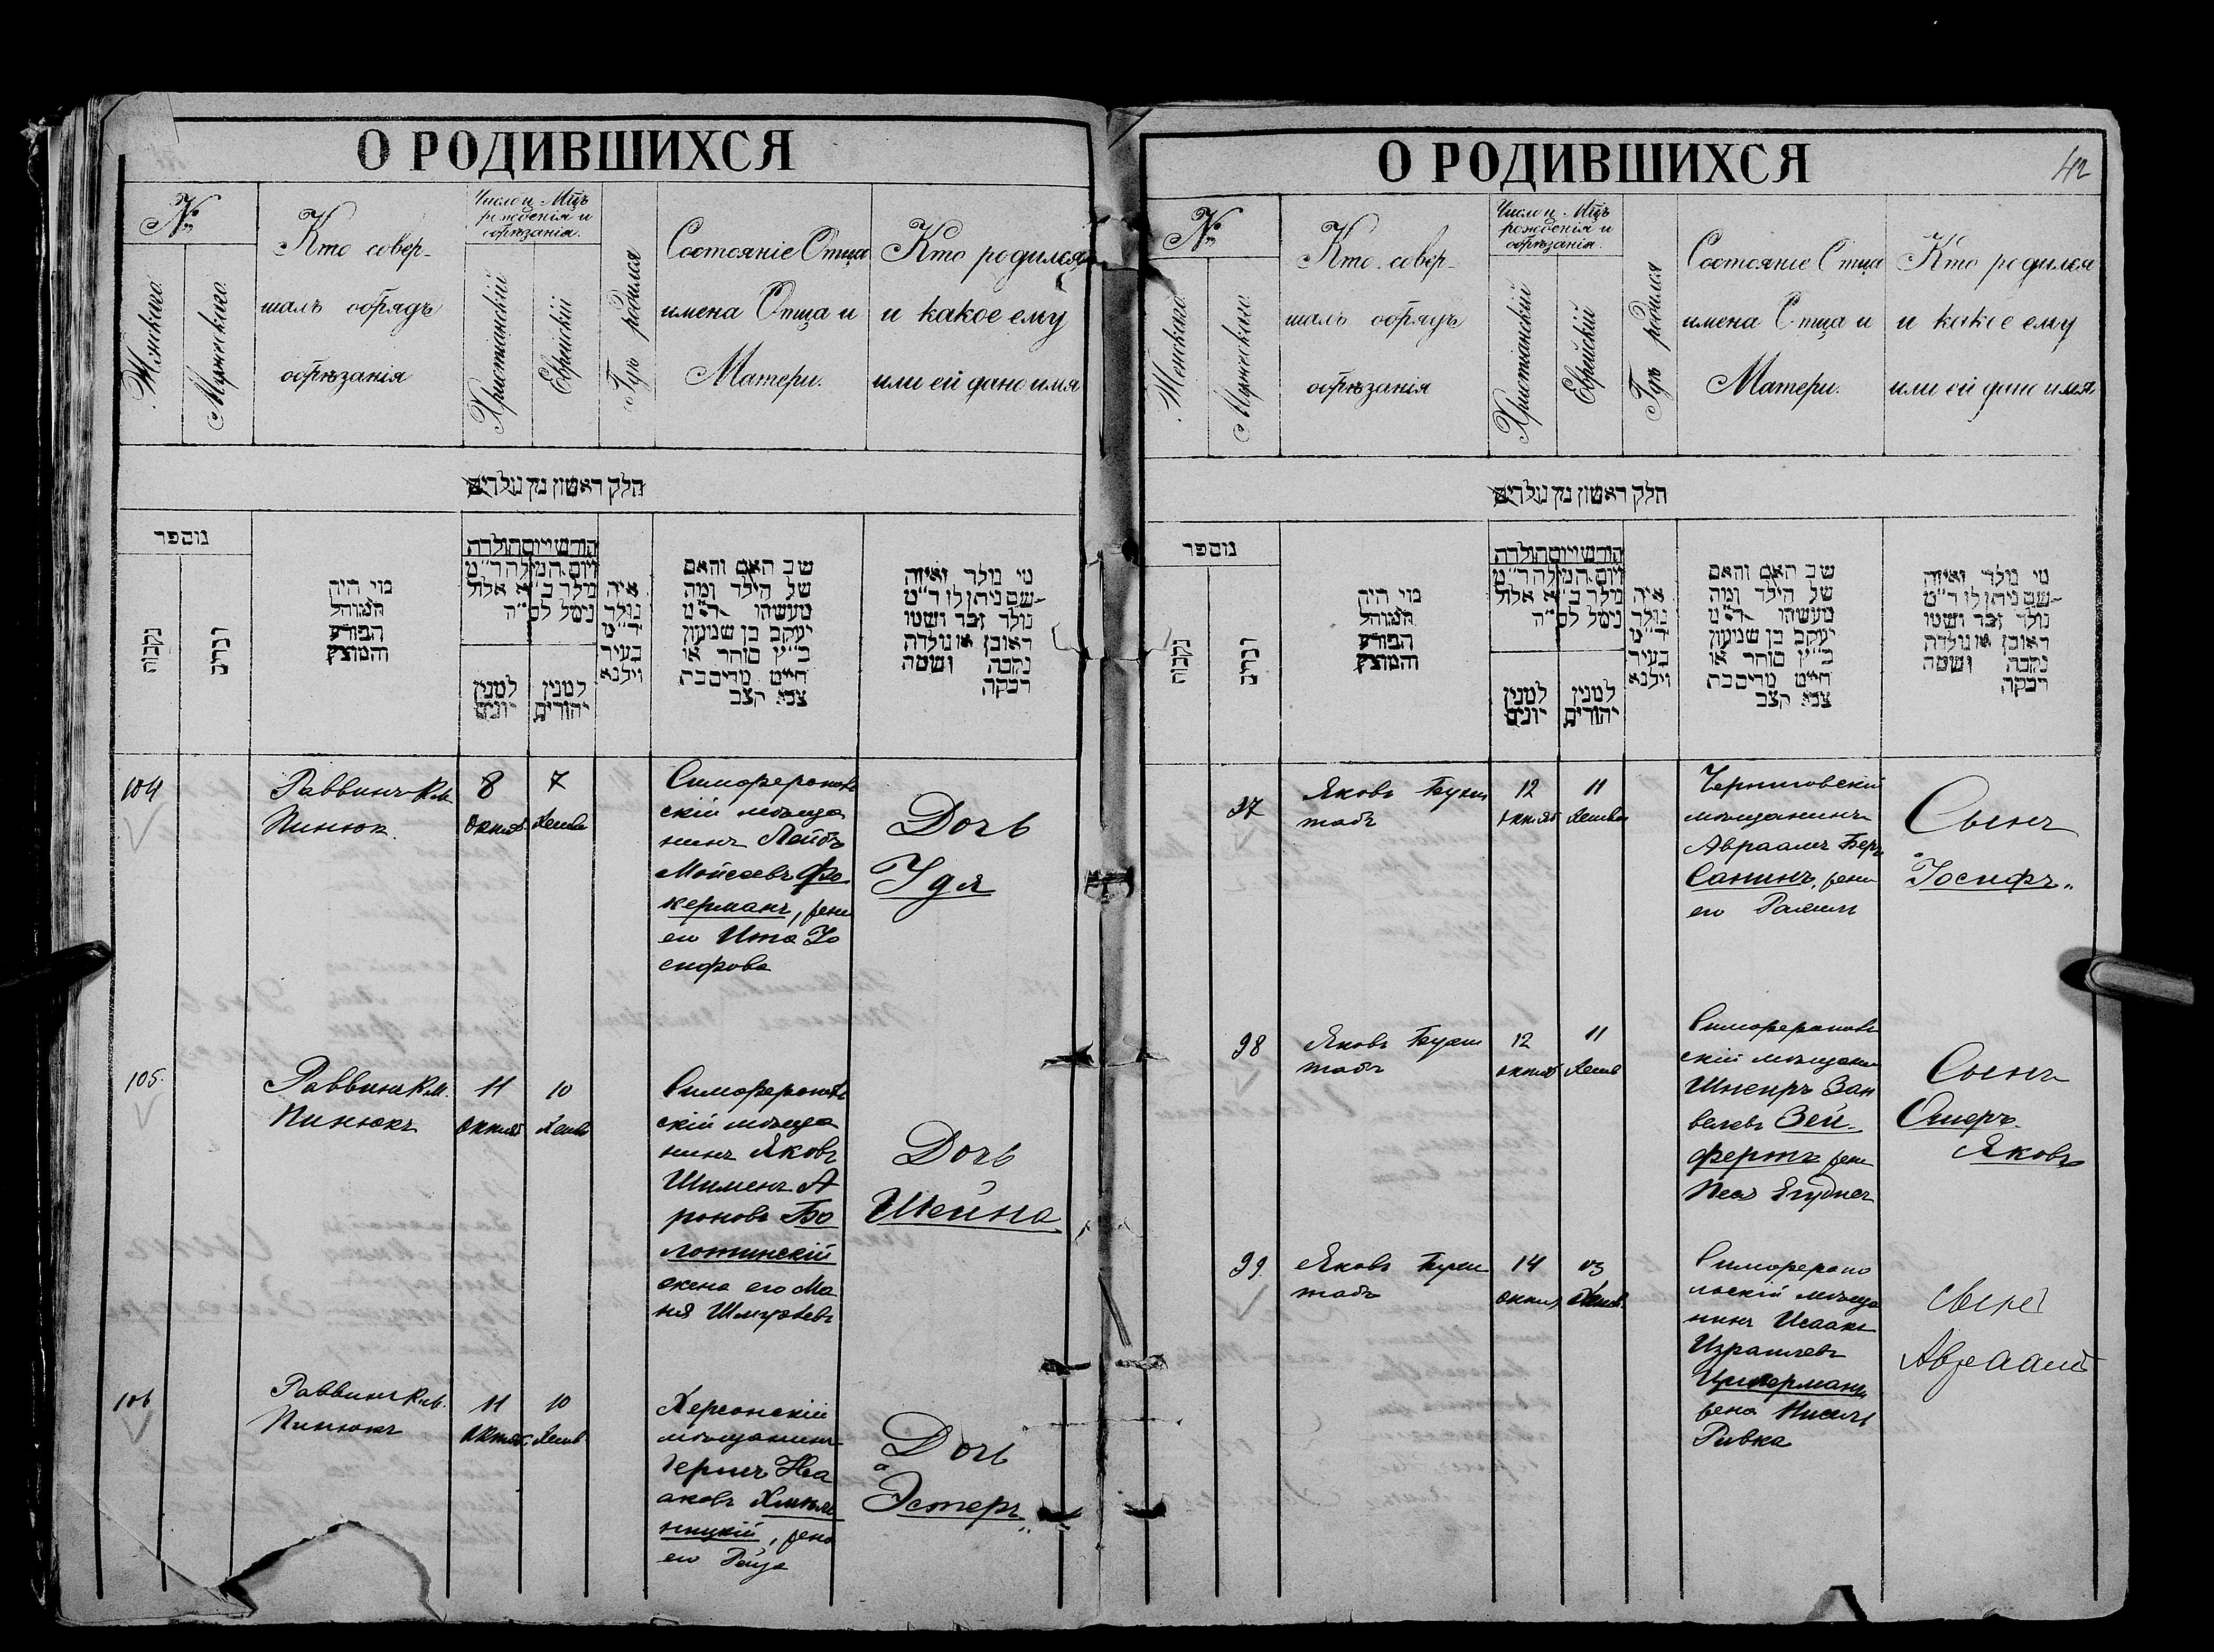 О РОДИВШИХСЯ
№
Женскаго.
Мужескаго.
Кто совер-
шалъ обрядъ
обрѣзанія
Число и Мцъ
рожденія и
обрѣзанія.
Христіанскій
Еврейскій
Гдѣ родился
Состояніе Отца
имена Отца и
Матери.
Кто родился
и какое ему
или ей дано имя
חלק ראשון מן נולדים
נקבות
זכרים
מי היה
המוהל
הפורע
והמוצץ
למנין
יונים
למנין
יהודים
איה
נולד
ד״מ
בעיר
ווילנא
שב האם והאם
של הילד ומה
מעשהו ד״מ
יעקב בן שמעון
כ״ץ סוחר או
חייט מרים בת
צבא קצב
מי נולד ואיזה
שם ניתן לו ד״מ
נולד זכר ושמו
ראובן או נולדת
נקבה ושמה
רבקה
104
Раввинъ К.М.
Пинюк.
8
Октяб.
7
Хешва
Симферополь
скій мѣща
нинъ Лейбъ
Моисеевъ Фо
керманъ, жена
его Ита Іо
сифова
Дочь
Удя
105.
Раввинъ К.М.
Пинюкъ
11
Октяб
10
Хешв
Симферополь
скій мѣща
нинъ Яковъ
Шименъ А
роновъ Бо
лотинскій
жена его Ма
ня Шмулевъ
Дочь
Шейна
106
Раввинъ К.М.
Пинюкъ
11
Октяб.
10
Хешв
Херсонскій
мѣщанинъ
Герш Иса
аковъ Хмель
ницкій, жена
его Рейза
Дочь
Эстеръ„
О РОДИВШИХСЯ
42
№
Женскаго
Мужескаго.
Кто совер-
шалъ обрядъ
обрѣзанія
Число и Мцъ
рожденія и
обрѣзанія.
Христіанскій
Еврейскій
Гдѣ родился
Состояніе Отца
имена Отца и
Матери.
Кто родился
и какое ему
или ей дано имя
חלק ראשון מן נולדים
נקבות
זכרים
מי היה
המוהל
הפורע
והמוצץ
למנין
יונים
למנין
יהודים
איה
נולד
ד״מ
בעיר
ווילנא
שב האם והאם
של הילד ומה
מעשהו ד״מ
יעקב בן שמעון
כ״ץ סוחר או
חייט מרים בת
צבא קצב
מי נולד ואיזה
שם ניתן לו ד״מ
נולד זכר ושמו
ראובן או נולדת
נקבה ושמה
רבקה
97
Яковъ
12
октяб
11
Хешва
Черниговскій
мѣщанинъ
Авраамъ Беръ
Санинъ, жена
его Рахиль
Сынъ
Іосифъ„
98
Яковъ
12
октяб
11
Хешв
Симферополь
скій мѣщани
Шнеиръ Зан
велевъ Зей-
фертъ жена
Песя
Сынъ
Ошеръ
Яковъ
99.
Яковъ
14
октяб
13
Хешв.
Симферопо
льскій мѣща
нинъ Исаакъ
Израилевъ
жена
Ривка
Сынъ
Авраамъ